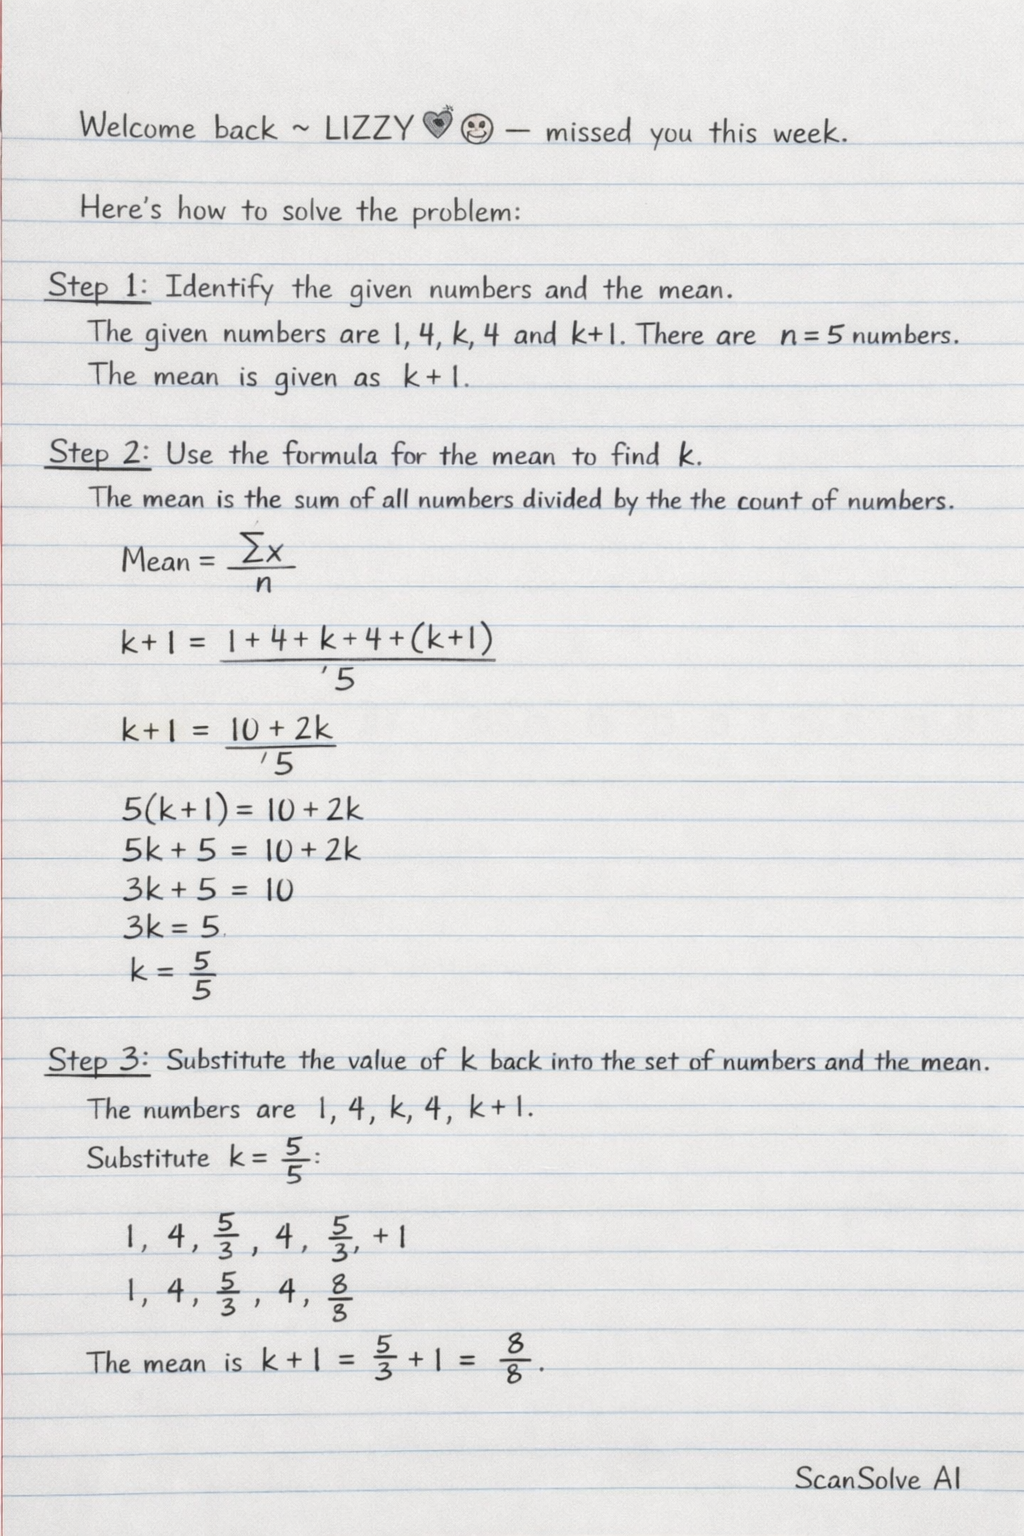 Welcome back ~ LIZZY — missed you this week.
Here's how to solve the problem:
Step 1: Identify the given numbers and the mean.
The given numbers are 1, 4, k, 4 and k+1. There are n = 5 numbers.
The mean is given as k+1.
Step 2: Use the formula for the mean to find k.
The mean is the sum of all numbers divided by the the count of numbers.
Mean = Σx / n
k+1 = 1 + 4 + k + 4 + (k+1) / 5
k+1 = 10 + 2k / 5
5(k+1) = 10 + 2k
5k + 5 = 10 + 2k
3k + 5 = 10
3k = 5.
k = 5/5
Step 3: Substitute the value of k back into the set of numbers and the mean.
The numbers are 1, 4, k, 4, k+1.
Substitute k = 5/5:
1, 4, 5/3, 4, 5/3, +1
1, 4, 5/3, 4, 8/8
The mean is k+1 = 5/3 + 1 = 8/8.
ScanSolve AI